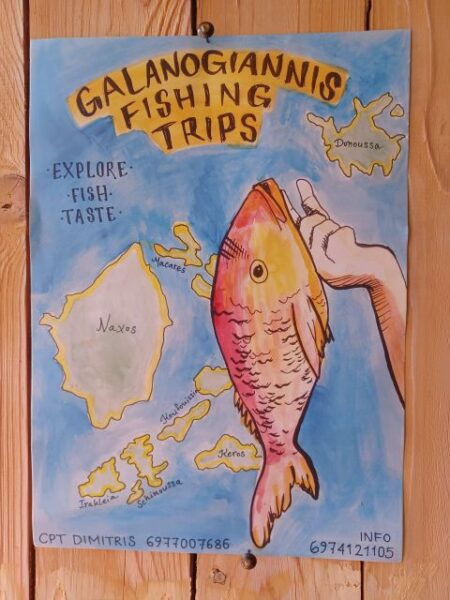 GALANOGIANNIS
FISHING
TRIPS
·EXPLORE·
·FISH·
·TASTE·
Donoussa
Macares
Naxos
Koufouissia
Keros
Irakleia
Schinoussa
CPT DIMITRIS 6977007686
INFO
6974121105